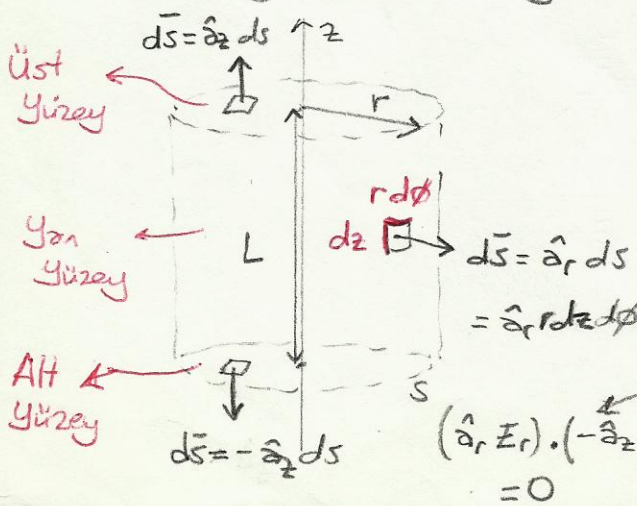 ds̄ = âz ds
z
Üst
Yüzey
r
r dφ
dz
Yan
Yüzey
L
ds̄ = âr ds
= âr r dz dφ
Alt
Yüzey
S
ds̄ = - âz ds
(âr Er) . (-âz
= 0